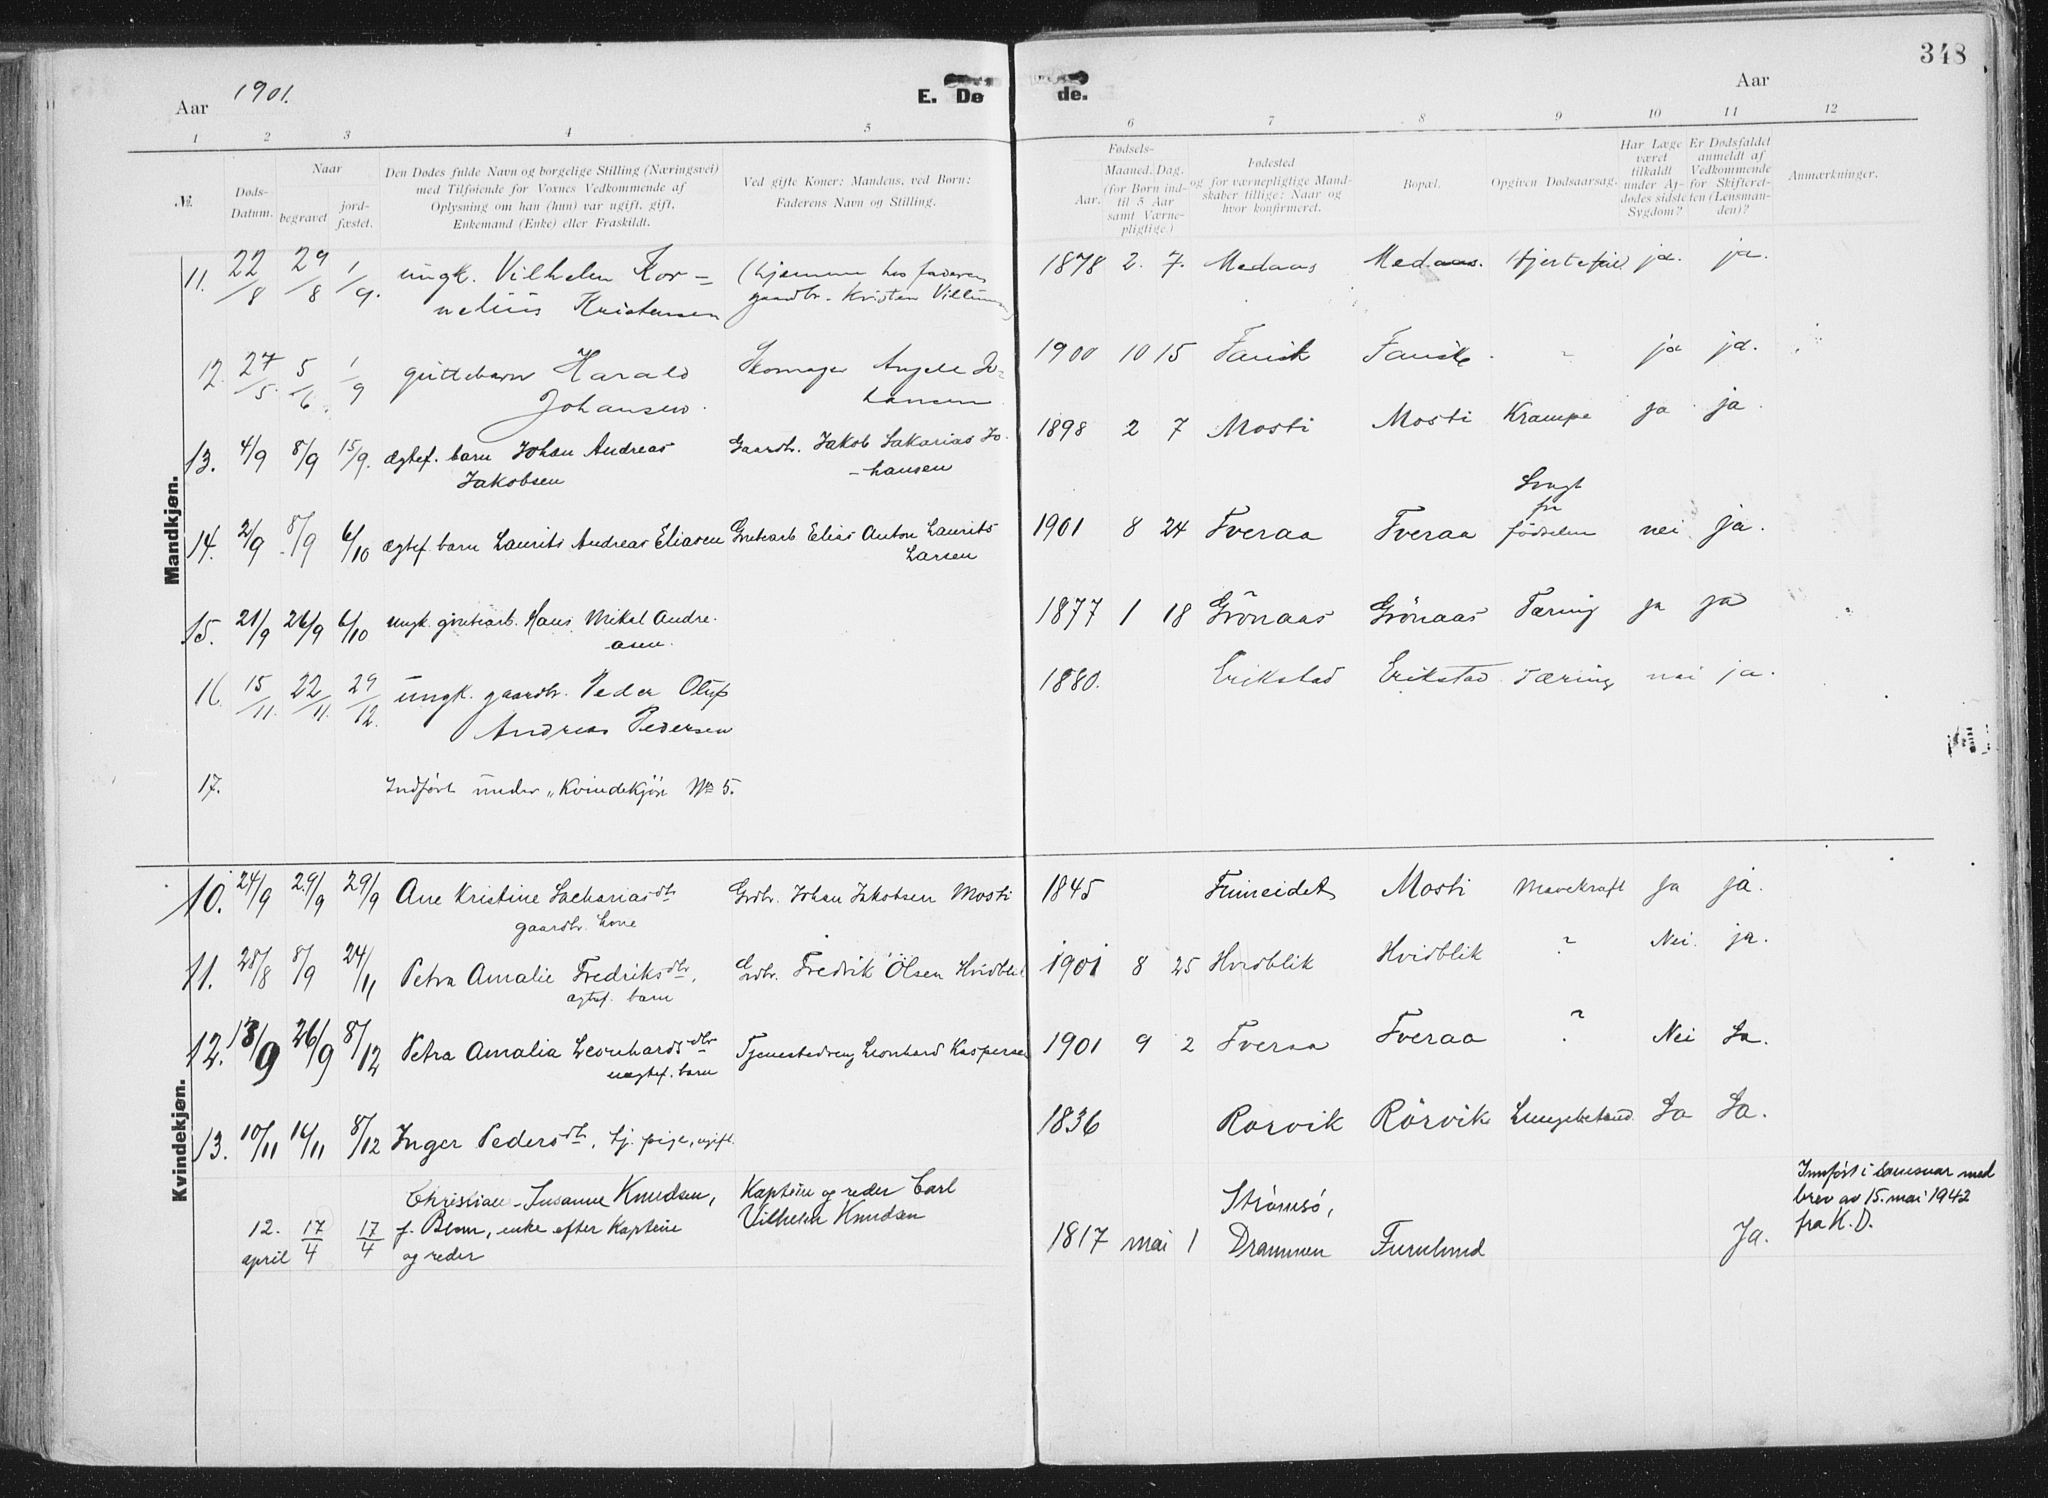 348
Aar 1901. E. Døde. Aar
1 2 3 4 5 6 7 8 9 10 11 12
№. Døds-Datum. Naar begravet jord-fæstet. Den Dødes fulde Navn og borgelige Stilling (Næringsvei) med Tilføiende for Voxnes Vedkommende af Oplysning om han (hun) var ugift, gift, Enkemand (Enke) eller Fraskildt. Ved gifte Koner: Mandens, ved Børn: Faderens Navn og Stilling. Fødsels- Aar. Maaned. Dag. (for Børn ind-til 5 Aar samt Værne-pligtige.) Fødested og for værnepligtige Mand-skaber tillige: Naar og hvor konfirmeret. Bopæl. Opgiven Dødsaarsag. Har Læge været tilkaldt under Af-dødes sidste Sygdom? Er Dødsfaldet anmeldt af Vedkommende for Skifteret-ten (Lensman-den)? Anmærkninger.
Mandkjøn.
11. 22/8 29/8 1/9. ungk. Vilhelm Kor- (hjemme hos faderen 1878 2. 7. Medaas Medaas. Hjertefeil ja. ja.
nelius Kristensen gaardbr. Kristen Villum
12. 27/5. 5/6. 1/9 guttebarn Harald Skomager Angell Jo- 1900 10 15 Fausk Fauske - ja ja.
Johansen. hansen
13. 4/9 8/9 15/9. ægtef. barn Johan Andreas Gaardbr. Jakob Sakarias Jo- 1898 2 7 Mosti Mosti Krampe ja ja
Jakobsen -hansen
14. 2/9 8/9 6/10 ægtef. barn Laurits Andreas Eliasen Grubearb Elias Anton Laurits 1901 8 24 Tveraa Tveraa Svagt fra fødselen nei ja.
Larsen
15. 21/9 26/9 6/10 ungk. grubearb. Hans Mikal Andre- 1877 1 18 Grönaas Grönaas Tæring ja ja
asen.
16. 15/11. 22/11. 29/12. ungk. gaardbr. Peder Oluf 1880. Erikstad Erikstad Tæring nei ja.
Andreas Pedersen
17. Indført under „Kvindekjön № 5.
Kvindekjøn.
10. 24/9 29/9 29/9 Ane Kristine Zachariasdtr Grdbr. Johan Jakobsen Mosti 1845 Finneidet Mosti Mavekræft Ja ja.
gaardbr. kone
11. 28/8 8/9 24/11 Petra Amalie Fredriksdtr, Grdbr. Fredrik Olsen Hvidblik 1901 8 25 Hvidblik Hvidblik ? Nei. ja.
ægtef. barn
12. 13/9 26/9 8/12 Petra Amalia Leonhardsdtr Tjenestedreng Leonhard Kaspersen 1901 9 2 Tveraa Tveraa ? Nei Ja.
uægtef. barn
13. 10/11 16/11 8/12 Inger Pedersdtr, tj. pige, ugift. 1836 Rörvik Rörvik Lungebetænd. Ja Ja.
12. april 17/4 17/4 Christiane Susanne Knudsen, Kaptein og reder Carl Strømsø, Innført i samsvar med
f. Blom, enke efter kaptein Vilhelm Knudsen 1817 mai 1 Drammen Furulund Ja. brev av 15. mai 1942
og reder fra K.D.